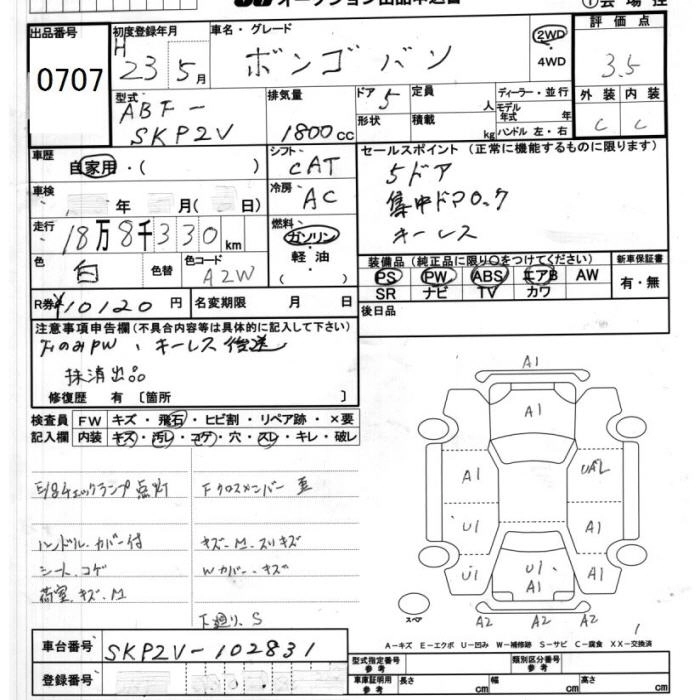 オークション出品申込書
出品番号
0707
初度登録年月
H 23年 5月
車名・グレード
ボンゴ バン
2WD
・
4WD
評価点
3.5
型式
ABF-
SKP2V
排気量
1800cc
ドア
5
定員
人
形状
積載
kg
ディーラー・並行
モデル年式 年
ハンドル 左・右
外装 内装
C C
車歴
自家用・( )
シフト
CAT
セールスポイント(正常に機能するものに限ります)
5ドア
集中ドアロック
キーレス
車検
年 月( 日)
冷房
AC
走行
18万8千330km
燃料
ガソリン
・
軽油
・
( )
色
白
色替
色コード
A2W
装備品(純正品に限り○をつけてください)
PS PW ABS エアB AW
SR ナビ TV カワ
新車保証書
有・無
R券 ¥10120円
名変期限 月 日
後日品
注意事項申告欄(不具合内容等は具体的に記入して下さい)
方のみPW、キーレス後送
抹消出品
修復歴 有 〔箇所 〕
検査員記入欄
FW キズ・飛石・ヒビ割・リペア跡・×要
内装 キズ・汚レ・コゲ・穴・スレ・キレ・破レ
E/gチェックランプ点灯
Fクロスメンバー 歪
ハンドル.カバー付
キズ-M.スリキズ
シート.コゲ
Wカバー.キズ
荷室.キズ.M
下廻リ.S
A1
A1
A1
U1
U1
UAL
A1
A1
U1
A1
A2 A2 A2
スペア
A-キズ E-エクボ U-凹み W-補修跡 S-サビ C-腐食 XX-交換済
車台番号
SKP2V-102831
登録番号
型式指定番号
参考
類別区分番号
参考
車庫証明用
参考
長さ cm
幅 cm
高さ cm